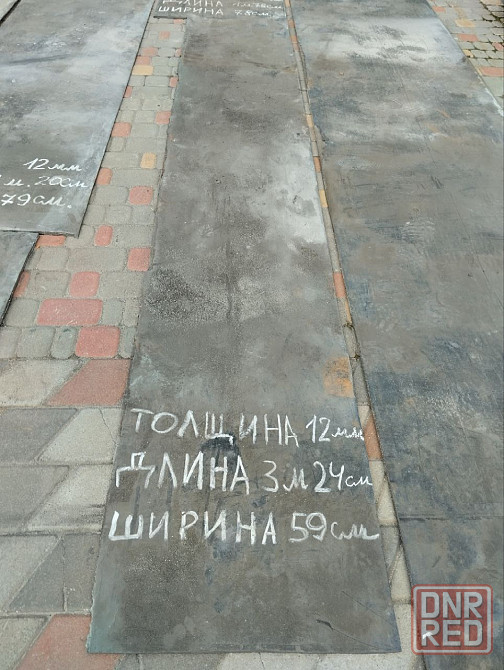 ШИРИНА 78см
12мм
м. 20см
79см.
ТОЛЩИНА 12мм
ДЛИНА 3м24см
ШИРИНА 59см
DNR
RED